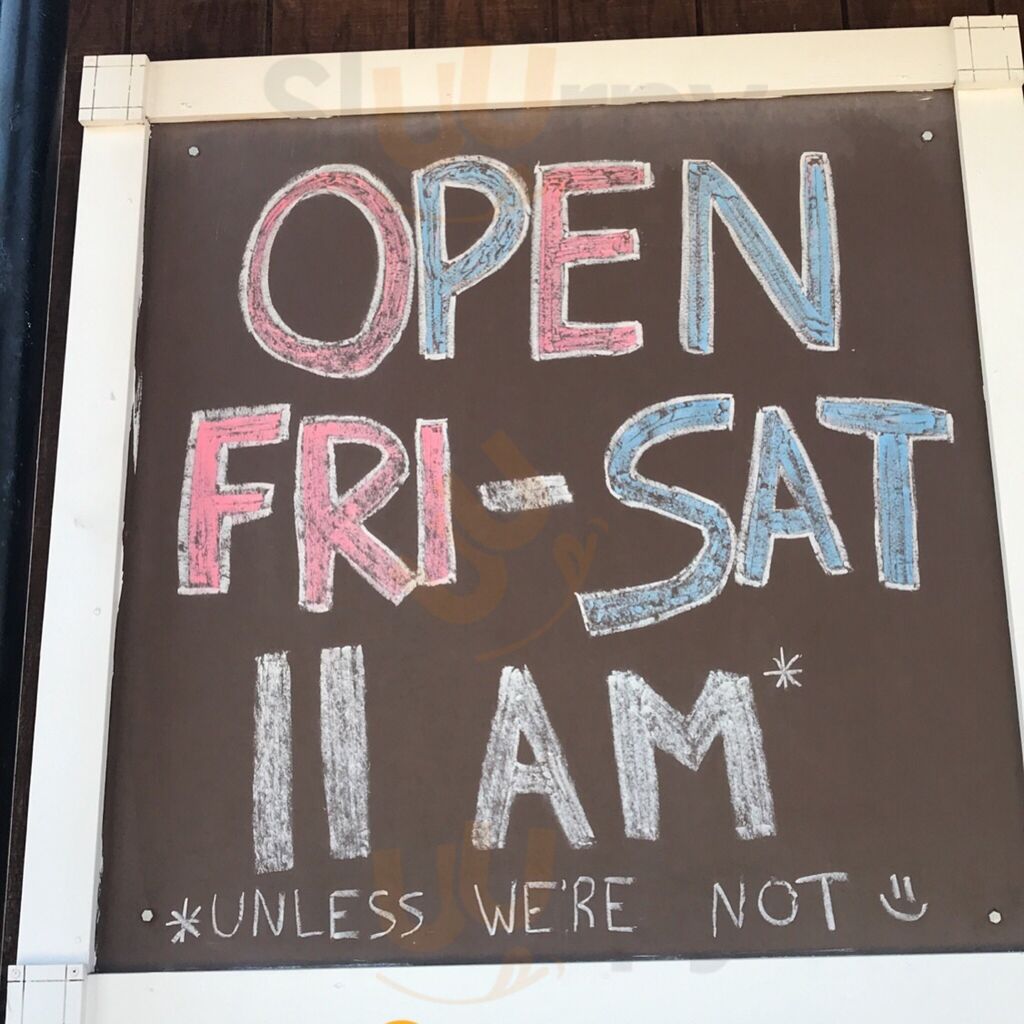 OPEN
FRI-SAT
11 AM*
*UNLESS WE'RE NOT